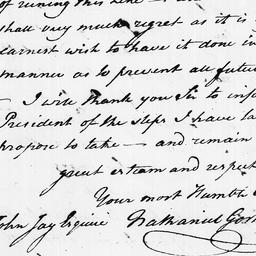 of runing this line — 
shall very much regret as it is
earnest wish to have it done in
manner as to prevent all future
— I will thank you Sir to info
President of the steps I have ta
propose to take — and remain
great esteem and respect
Your most Humble
John Jay Esquire Nathaniel Gor